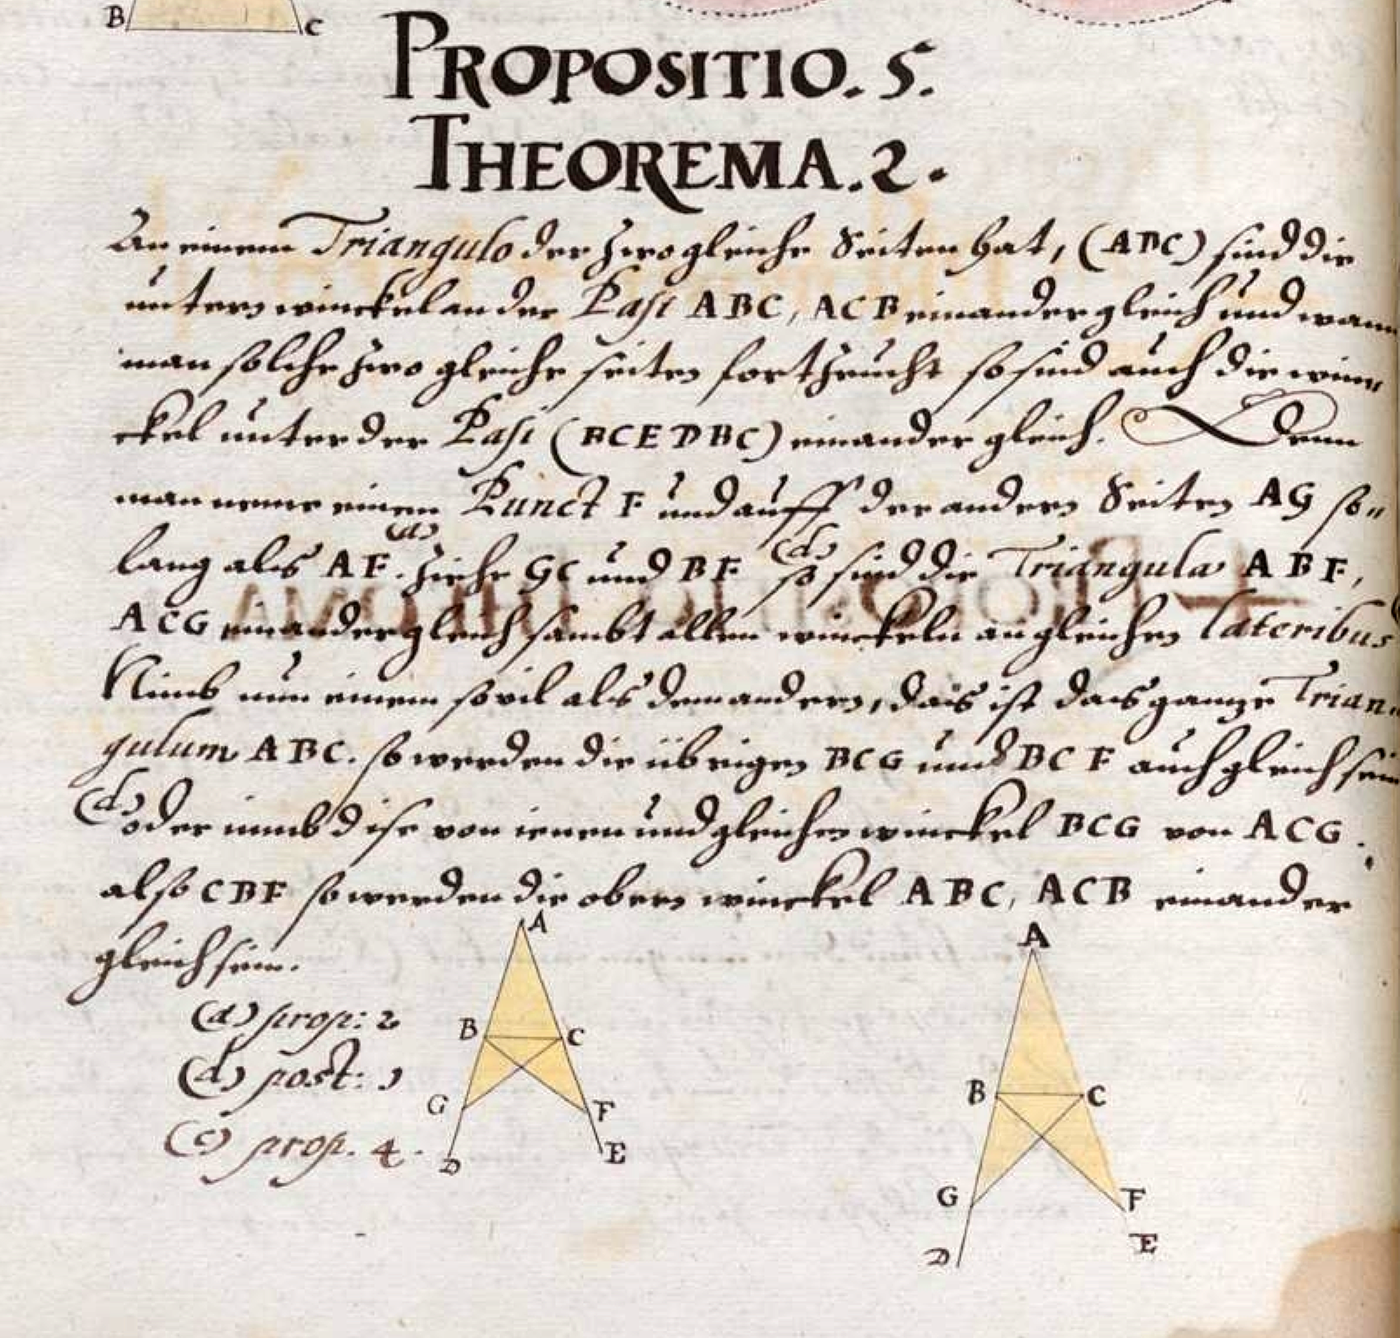 B C
PROPOSITIO. 5.
THEOREMA. 2.
An einem Triangulo der zwo gleiche Seiten hat, (ABC) sind die
untern winckel an der Basi ABC, ACB einander gleich und wann
man solche zwo gleiche seiten fortzeucht so sind auch die win„
ckel unter der Basi (BCE DBC) einander gleich. Denn
man neme einen Punct F und auff der andern Seiten AG so„
(a) (d)
lang als AF. Ziehe GC und BF so sind die Triangula ABF,
ACG einander gleich sambt allen winckeln an gleichen lateribus
Nimb nun einem so vil als dem andern, das ist das gantze Trian„
gulum ABC. so werden die übrigen BCG und BCF auch gleich sein
(d) oder nimb dise von ienen und gleichen winckel BCG von ACG.
also CBF so werden die obern winckel ABC, ACB einander
gleich sein.
(a) prop: 2
(d) post:
(c) prop. 4.
A
B C
G F
D E
A
B C
G F
D E